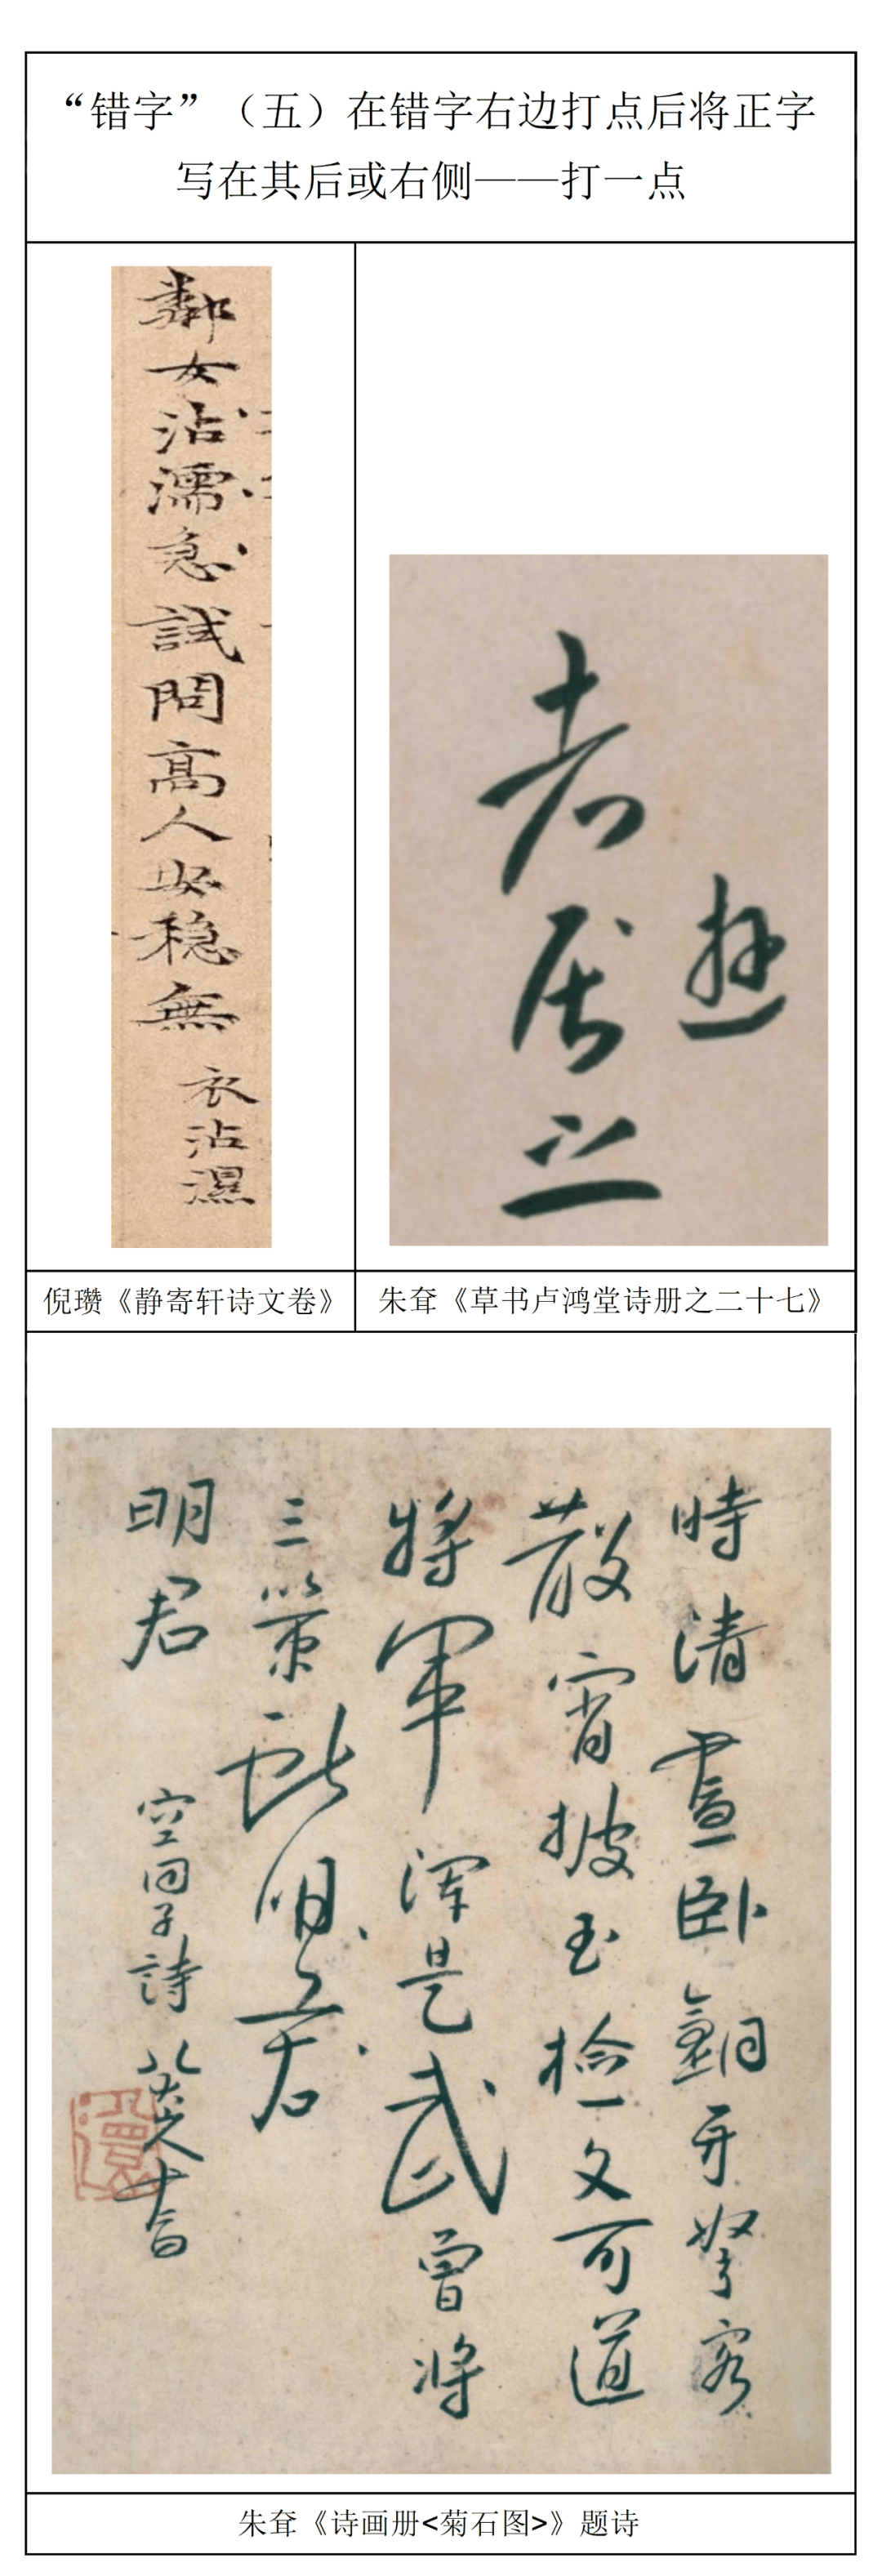 “错字”（五）在错字右边打点后将正字
写在其后或右侧——打一点
鄰女沾濡急試問高人安稳無
衣沾濕
老居之
遊
倪瓒《静寄轩诗文卷》
朱耷《草书卢鸿堂诗册之二十七》
時清晝卧銅开弩客
散宵披玉检文可道
將軍浑是武曾将
三策献明主君
明君
空同子詩
八大山人書
朱耷《诗画册<菊石图>》题诗